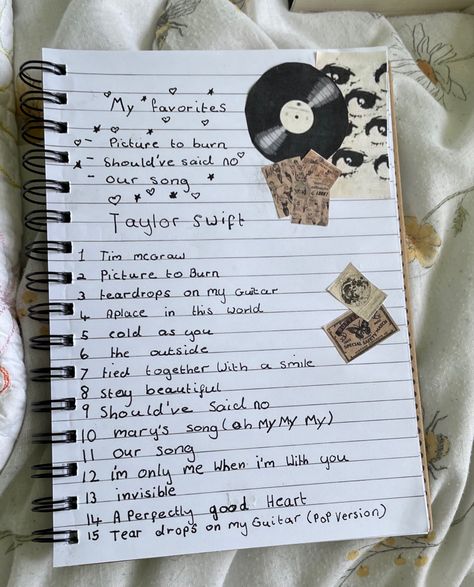 My favorites
- Picture to burn
- Should've said no
- Our song
Taylor Swift
1 Tim mcGraw
2 Picture to Burn
3 teardrops on my Guitar
4 Aplace in this world
5 cold as you
6 the outside
7 tied together With a smile
8 stay beautiful
9 Should've Said no
10 mary's song (oh MY MY MY)
11 our song
12 i'm only me When i'm With you
13 invisible
14 A Perfectly good Heart
15 Tear drops on my Guitar (Pop version)